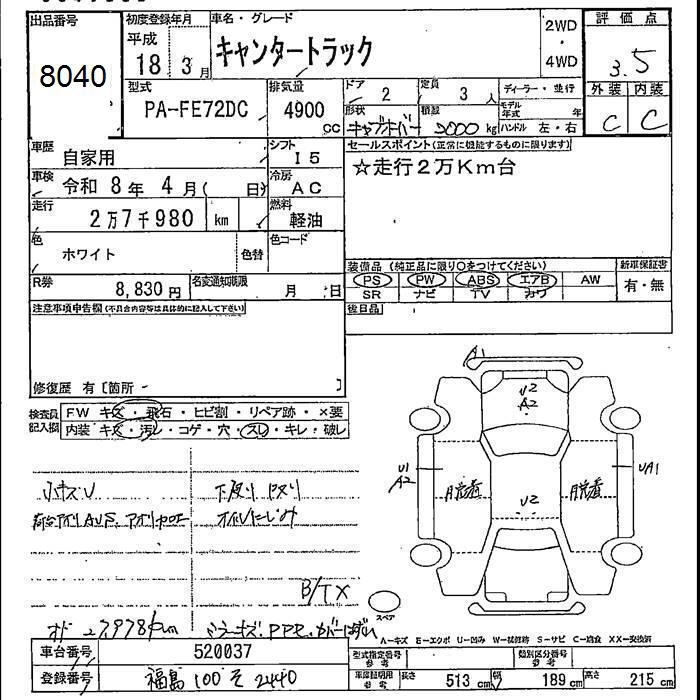 出品番号 初度登録年月 車名・グレード 2WD・4WD 評価点
8040 平成 18 3月 キャンタートラック 3.5
外装 内装
C C
型式 PA-FE72DC 排気量 4900 CC
ドア 2 定員 3 人 ディーラー・並行
形状 積載 2000 kg モデル年式 年
ハンドル 左・右
車歴 自家用 シフト I5
セールスポイント(正常に機能するものに限ります)
☆走行2万Km台
車検 令和 8年 4月( 日) 冷房 AC
走行 2万7千980 km 燃料 軽油
色 ホワイト 色替 色コード
R券 8,830円 名変通知期限 月 日
装備品 (純正品に限り○をつけてください) 新車保証書
PS PW ABS エアB AW 有・無
SR ナビ TV カワ
後日品
注意事項申告欄(不具合内容等は具体的に記入して下さい)
修復歴 有〔箇所 - 〕
検査員記入欄 FW キズ・飛石・ヒビ割・リペア跡・×要
内装 キズ・汚レ・コゲ・穴・スレ・キレ・破レ
A1
U2
A2
U1
A2
UA1
U2
小キズU 下廻り
オイルにじみ
B/TX
スペア
オド 27978km
A-キズ E-エクボ U-凹み W-板修跡 S-サビ C-腐食 XX-交換済
車台番号 520037 型式指定番号 参考 類別区分番号 参考
登録番号 福島 100 そ 2440 車庫証明用 参考 長さ 513cm 幅 189cm 高さ 215cm